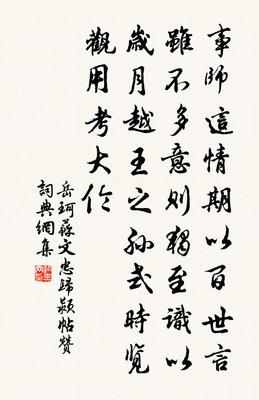 事師這情期以百世言
雖不多意則獨至識以
歲月越王之孫式時覽
觀用考大伦
岳珂蘇文忠歸潁帖贊
詞典網集